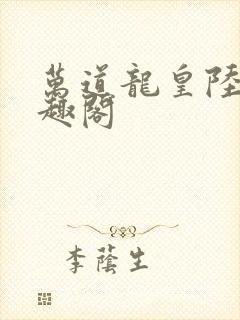 萬道龍皇陸
趣閣
李蔭生